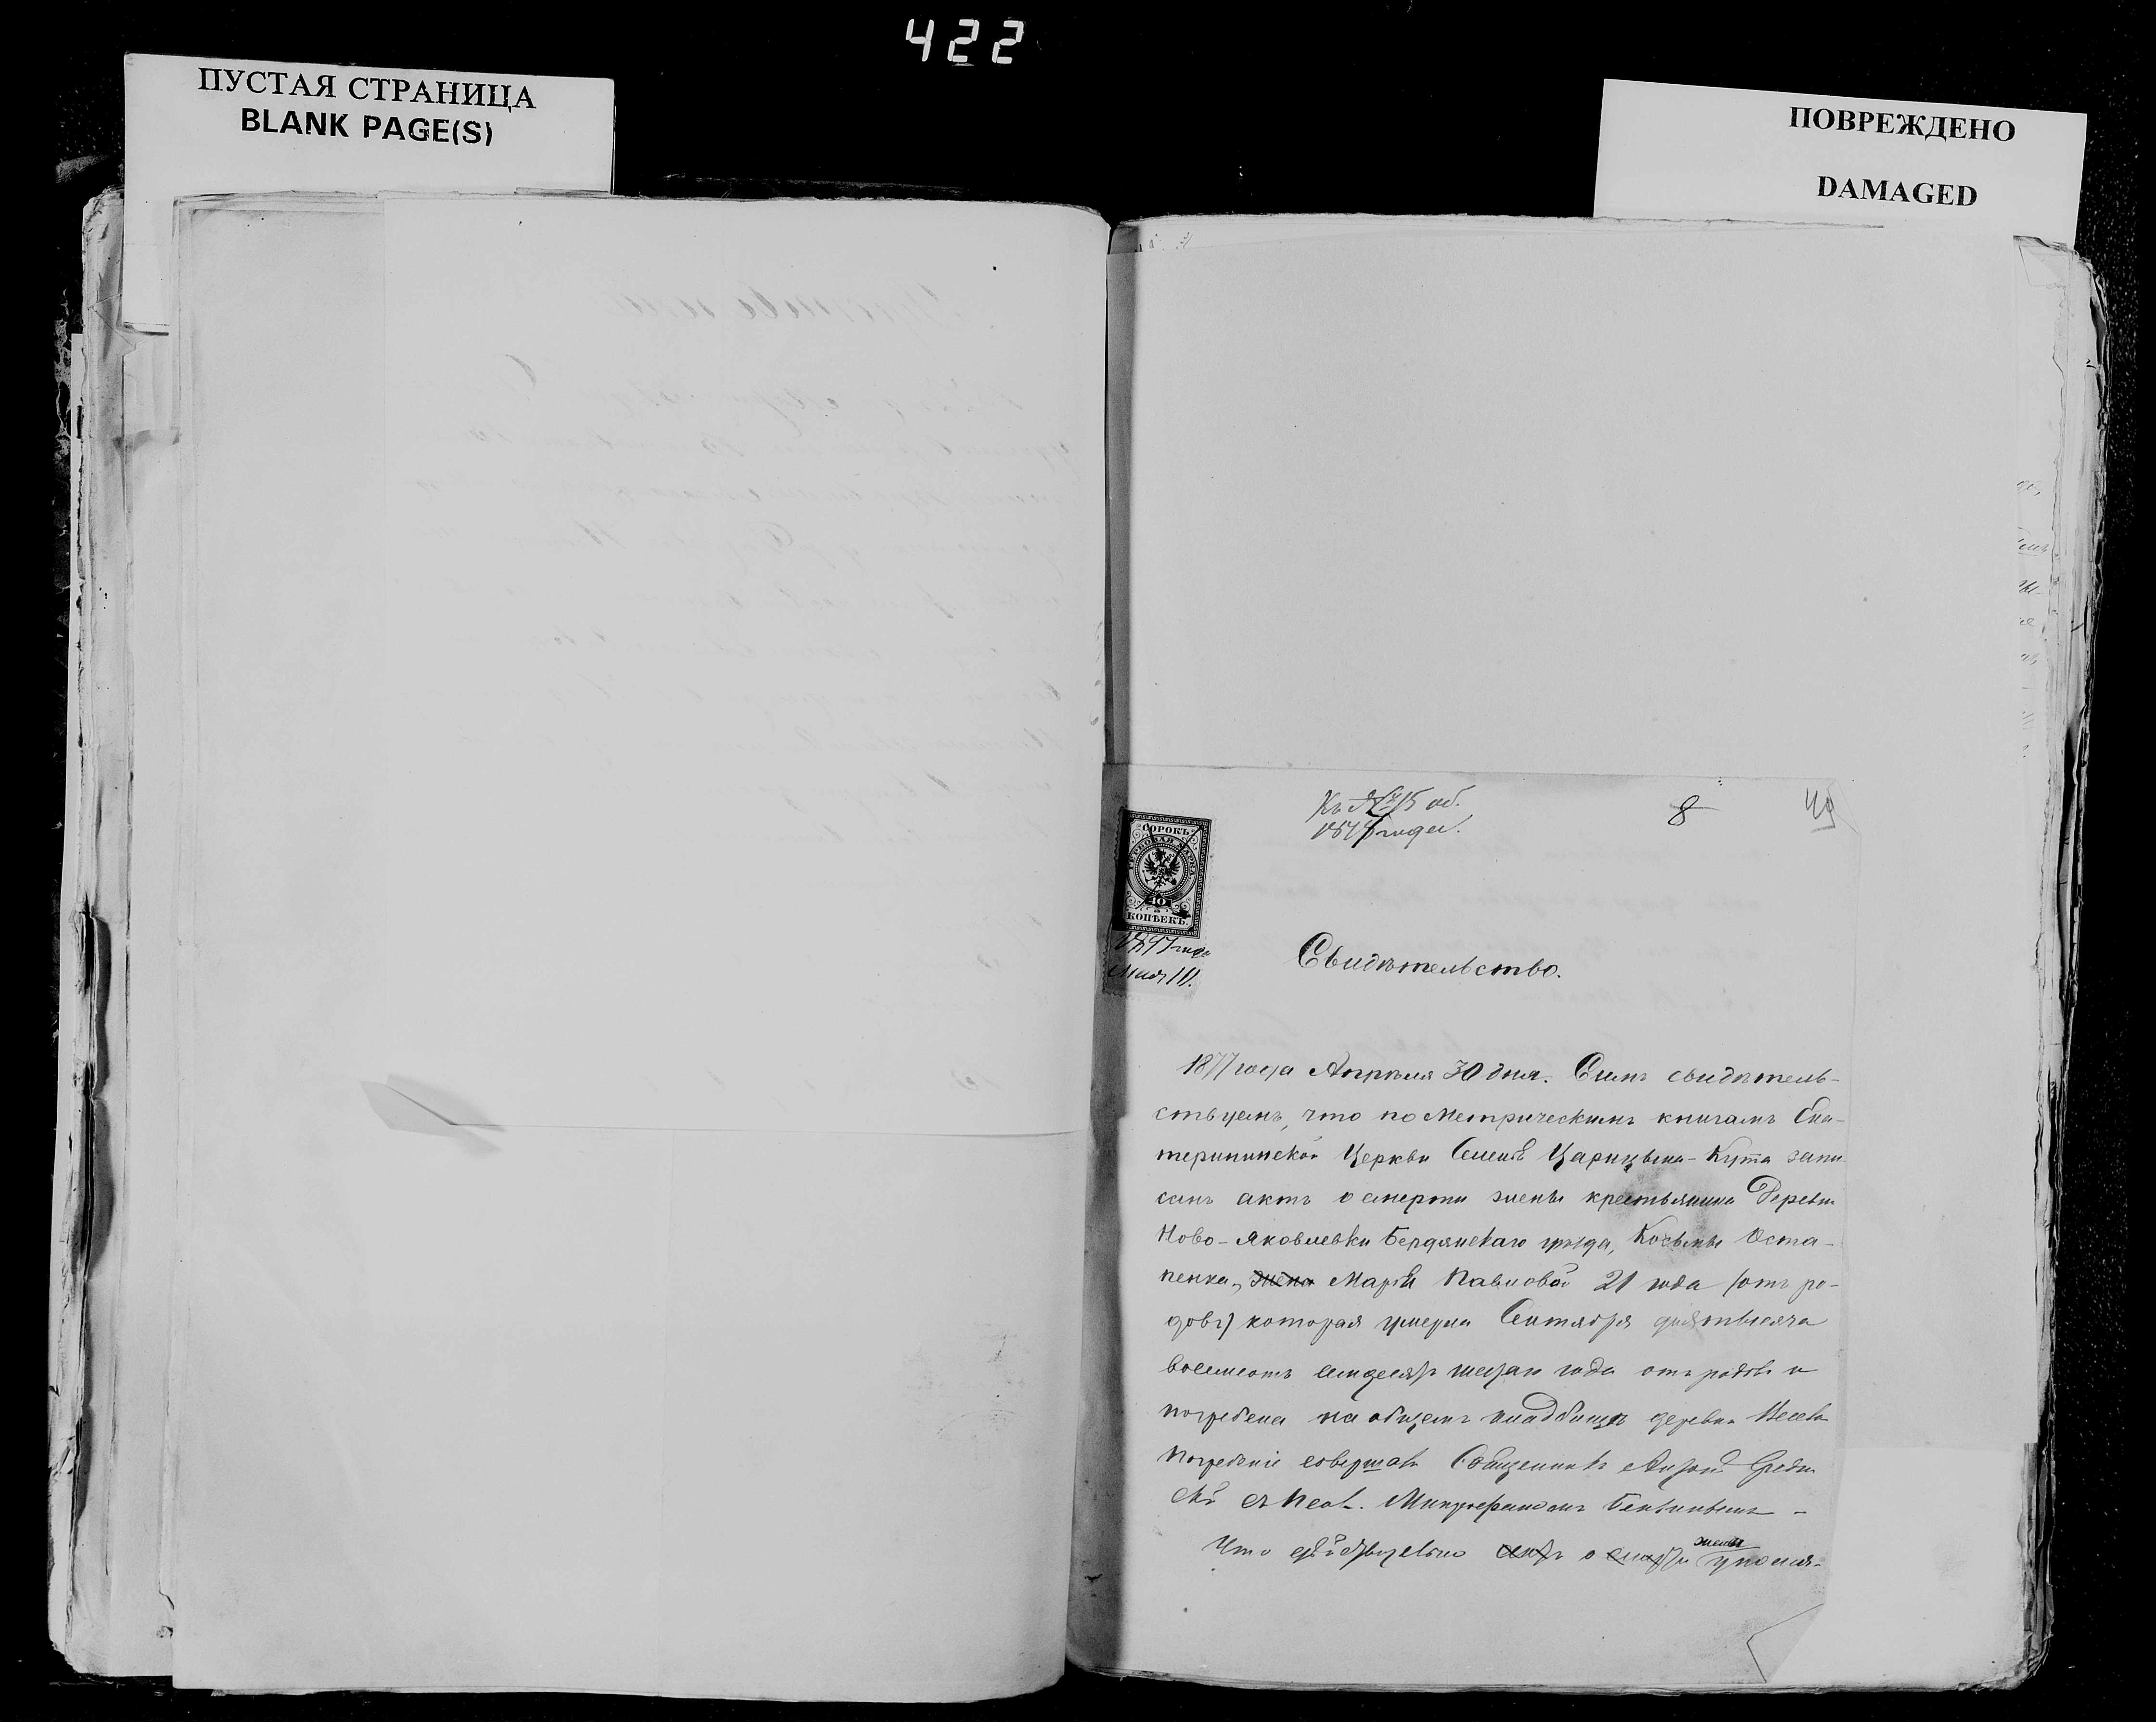 422
ПУСТАЯ СТРАНИЦА
BLANK PAGE(S)
ПОВРЕЖДЕНО
DAMAGED
Къ № 15 об.
187 года.
8
СОРОКЪ
ГЕРБОВАЯ МАРКА
40
КОПѢЕКЪ.
года
Мая
Свидѣтельство.
1877 года Апрѣля 30 дня. Симъ свидѣтель-
ствуемъ, что по Метрическимъ книгамъ Ека-
терининской Церкви Селенія Царицына-Кута запи
санъ актъ о смерти жены крестьянина Деревни
Ново-Яковлевки Бердянскаго уѣзда, Козьмы Оста-
пенка, жена Маріи Павловой 21 года (отъ ро-
довъ) которая умерла Сентября дня тысяча
восемсотъ семдесятъ шестаго года отъ родовъ и
погребена на общемъ кладбищѣ деревни
Погребеніе совершалъ Священникъ
скій съ Псал.
Что дѣйствительно актъ о смерти жены упомя-